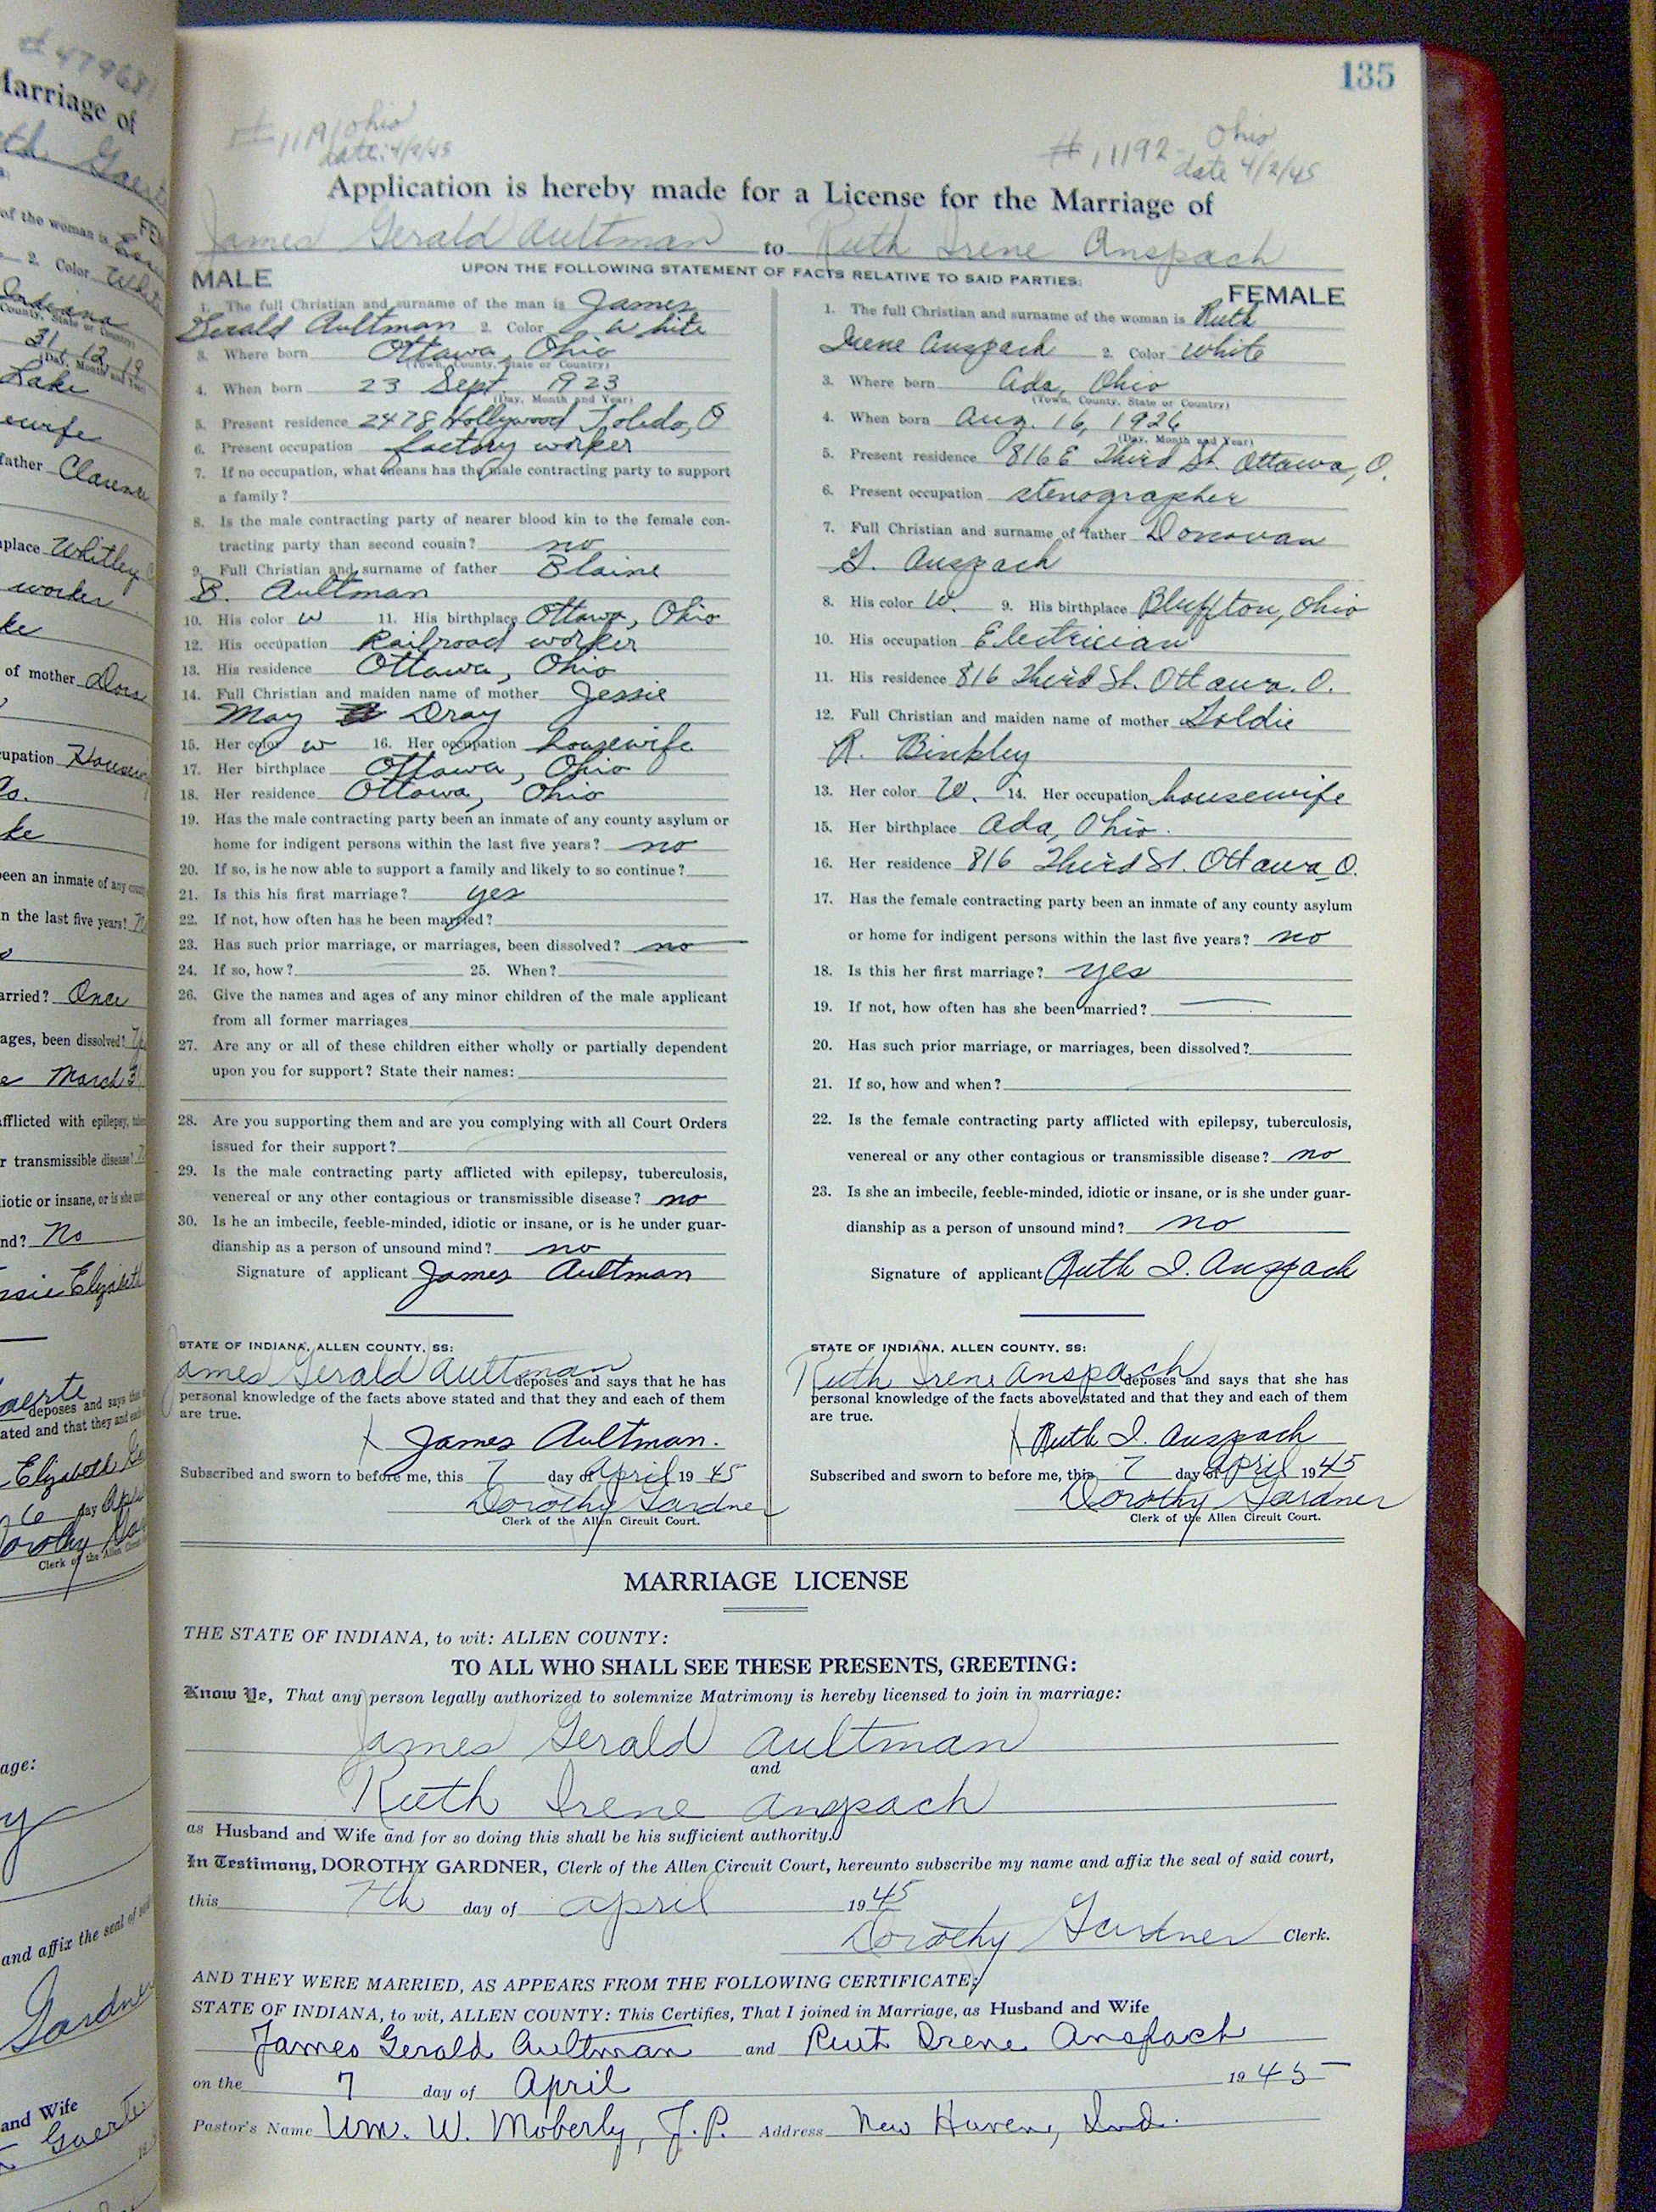 135
# 11191 Ohio
date: 4/2/45
# 11192 - Ohio
date 4/2/45
Application is hereby made for a License for the Marriage of
James Gerald Aultman to Ruth Irene Anspach
UPON THE FOLLOWING STATEMENT OF FACTS RELATIVE TO SAID PARTIES:
MALE
1. The full Christian and surname of the man is James
Gerald Aultman 2. Color White
3. Where born Ottawa, Ohio
(Town, County, State or Country)
4. When born 23 Sept. 1923
(Day, Month and Year)
5. Present residence 2478 Hollywood Toledo, O
6. Present occupation factory worker
7. If no occupation, what means has the male contracting party to support
a family?
8. Is the male contracting party of nearer blood kin to the female con-
tracting party than second cousin? no
9. Full Christian and surname of father Blaine
B. Aultman
10. His color w 11. His birthplace Ottawa, Ohio
12. His occupation Railroad worker
13. His residence Ottawa, Ohio
14. Full Christian and maiden name of mother Jessie
May Dray
15. Her color w 16. Her occupation housewife
17. Her birthplace Ottawa, Ohio
18. Her residence Ottawa, Ohio
19. Has the male contracting party been an inmate of any county asylum or
home for indigent persons within the last five years? no
20. If so, is he now able to support a family and likely to so continue?
21. Is this his first marriage? yes
22. If not, how often has he been married?
23. Has such prior marriage, or marriages, been dissolved? no
24. If so, how? 25. When?
26. Give the names and ages of any minor children of the male applicant
from all former marriages
27. Are any or all of these children either wholly or partially dependent
upon you for support? State their names:
28. Are you supporting them and are you complying with all Court Orders
issued for their support?
29. Is the male contracting party afflicted with epilepsy, tuberculosis,
venereal or any other contagious or transmissible disease? no
30. Is he an imbecile, feeble-minded, idiotic or insane, or is he under guar-
dianship as a person of unsound mind? no
Signature of applicant James Aultman
STATE OF INDIANA, ALLEN COUNTY, SS:
James Gerald Aultman deposes and says that he has
personal knowledge of the facts above stated and that they and each of them
are true.
X James Aultman.
Subscribed and sworn to before me, this 7 day of April 19 45
Dorothy Gardner
Clerk of the Allen Circuit Court.
FEMALE
1. The full Christian and surname of the woman is Ruth
Irene Anspach 2. Color White
3. Where born Ada, Ohio
(Town, County, State or Country)
4. When born Aug. 16, 1926
(Day, Month and Year)
5. Present residence 816 E Third St. Ottawa, O.
6. Present occupation stenographer
7. Full Christian and surname of father Donovan
L. Anspach
8. His color W. 9. His birthplace Bluffton, Ohio
10. His occupation Electrician
11. His residence 816 Third St. Ottawa. O.
12. Full Christian and maiden name of mother Goldie
R. Binkley
13. Her color W. 14. Her occupation housewife
15. Her birthplace Ada, Ohio.
16. Her residence 816 Third St. Ottawa, O.
17. Has the female contracting party been an inmate of any county asylum
or home for indigent persons within the last five years? no
18. Is this her first marriage? yes
19. If not, how often has she been married?
20. Has such prior marriage, or marriages, been dissolved?
21. If so, how and when?
22. Is the female contracting party afflicted with epilepsy, tuberculosis,
venereal or any other contagious or transmissible disease? no
23. Is she an imbecile, feeble-minded, idiotic or insane, or is she under guar-
dianship as a person of unsound mind? no
Signature of applicant Ruth I. Anspach
STATE OF INDIANA, ALLEN COUNTY, SS:
Ruth Irene Anspach deposes and says that she has
personal knowledge of the facts above stated and that they and each of them
are true.
X Ruth I. Anspach
Subscribed and sworn to before me, this 7 day of April 19 45
Dorothy Gardner
Clerk of the Allen Circuit Court.
MARRIAGE LICENSE
THE STATE OF INDIANA, to wit: ALLEN COUNTY:
TO ALL WHO SHALL SEE THESE PRESENTS, GREETING:
Know Ye, That any person legally authorized to solemnize Matrimony is hereby licensed to join in marriage:
James Gerald Aultman
and
Ruth Irene Anspach
as Husband and Wife and for so doing this shall be his sufficient authority.
In Testimony, DOROTHY GARDNER, Clerk of the Allen Circuit Court, hereunto subscribe my name and affix the seal of said court,
this 7th day of April 19 45
Dorothy Gardner Clerk.
AND THEY WERE MARRIED, AS APPEARS FROM THE FOLLOWING CERTIFICATE:
STATE OF INDIANA, to wit, ALLEN COUNTY: This Certifies, That I joined in Marriage, as Husband and Wife
James Gerald Aultman and Ruth Irene Anspach
on the 7 day of April 19 45
Pastor's Name Wm. W. Moberly, J.P. Address New Haven, Ind.